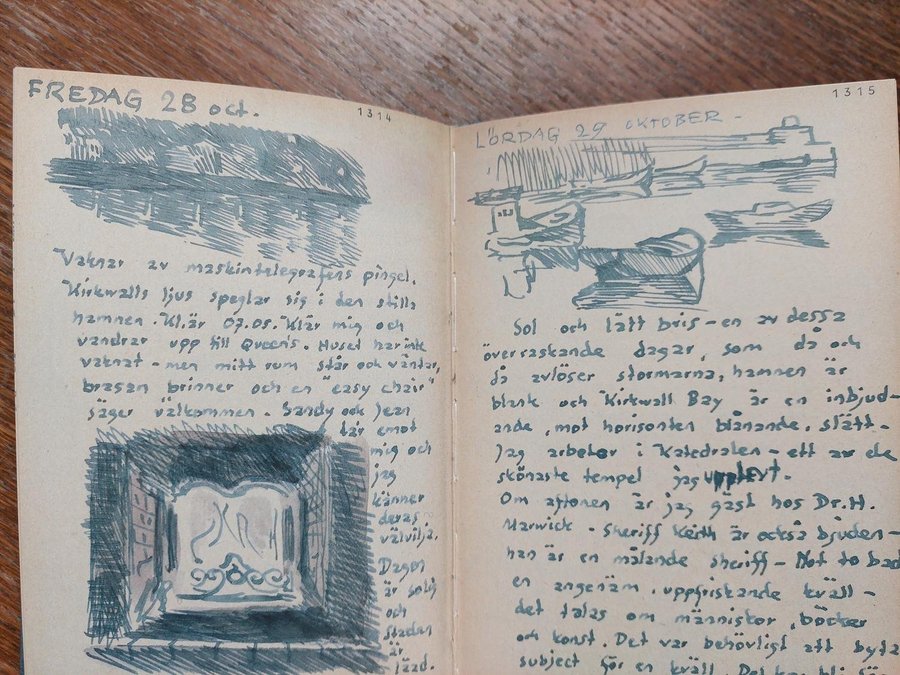 FREDAG 28 oct.
1314
Vaknar av maskintelegrafens pingel.
Kirkwalls ljus speglar sig i den stilla
hamnen. Kl.är 07.05. Klär mig och
vandrar upp till Queens. Huset har inte
vaknat - men mitt rum står och väntar,
brasan brinner och en "easy chair"
säger välkommen. Sandy och Jean
tar emot
mig och
jag
känner
deras
välvilja.
Dagen
är solig
och
staden
är
1315
LÖRDAG 29 OKTOBER -
Sol och lätt bris - en av dessa
överraskande dagar, som då och
då avlöser stormarna, hamnen är
blank och Kirkwall Bay är en inbjud-
ande, mot horisonten blånande, slätt -
Jag arbetar i Katedralen - ett av de
skönaste tempel jag upplevt.
Om aftonen är jag gäst hos Dr. H.
Marwick - Sheriff Keith är också bjuden -
han är en målande sheriff - Not to bad
en angenäm, uppfriskande kväll -
det talas om människor, böcker
och konst. Det var behövligt att byta
subject för en kväll. Det